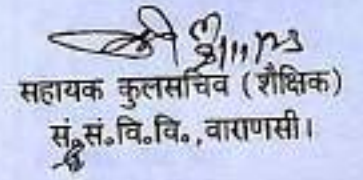 सहायक कुलसचिव (शैक्षिक)
सं.सं.वि.वि.,वाराणसी।